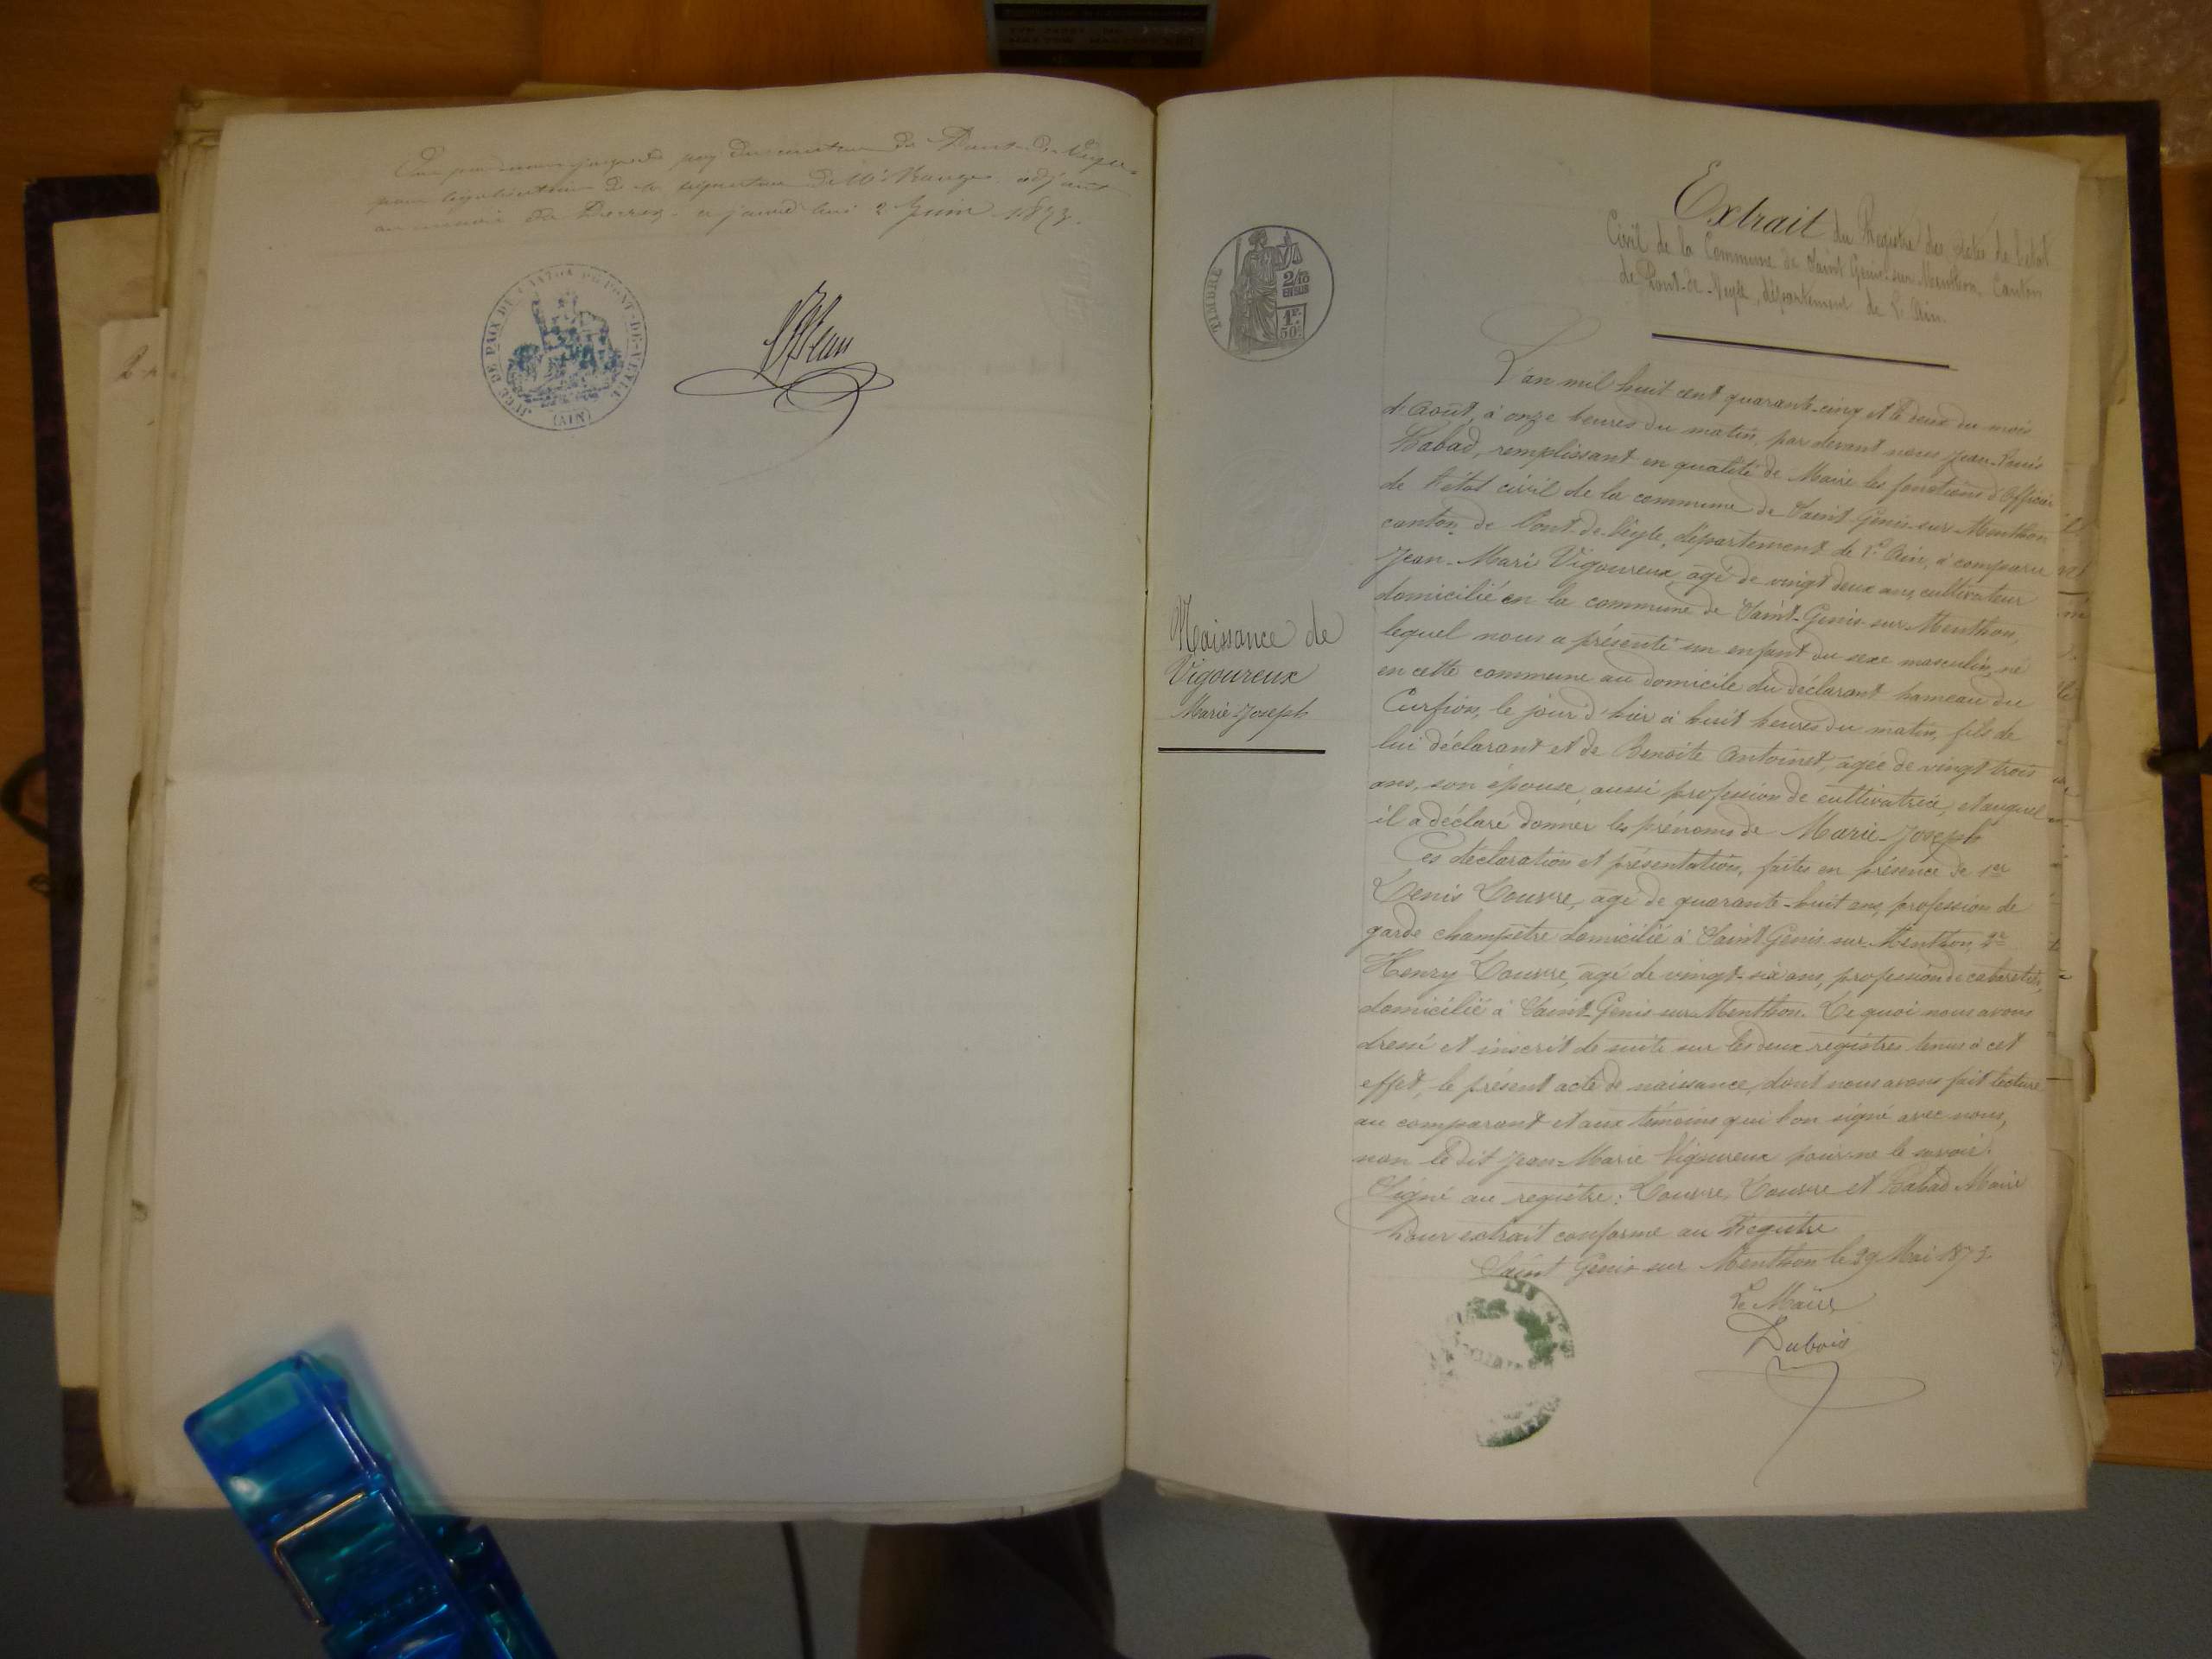 pour légalisation de la signature de Mr adjoint
au maire de ce jourd'hui 2 Juin 1873.
JUGE DE PAIX DU CANTON DE PONT-DE-VEYLE
(AIN)
TIMBRE
2/10
EN SUS
1F.
50C.
Extrait du Registre des actes de l'état
Civil de la Commune de Saint Genis-sur-Menthon, Canton
de Pont-de-Veyle, département de l'Ain.
Naissance de
Vigoureux
Marie-Joseph
L'an mil huit cent quarante-cinq et le deux du mois
d'Août, à onze heures du matin, par devant nous Jean-Louis
Rabad, remplissant en qualité de Maire les fonctions d'officier
de l'état civil de la commune de Saint Genis-sur-Menthon
canton de Pont-de-Veyle, département de l'Ain, à comparu
Jean-Marie Vigoureux, âgé de vingt deux ans, cultivateur
domicilié en la commune de Saint-Genis-sur-Menthon,
lequel nous a présenté un enfant du sexe masculin, né
en cette commune au domicile du déclarant hameau du
Curfion, le jour d'hier à huit heures du matin, fils de
lui déclarant et de Benoite Antoinet, âgée de vingt trois
ans, son épouse, aussi profession de cultivatrice, et auquel
il a déclaré donner les prénoms de Marie-Joseph
Ces déclaration et présentation, faites en présence de 1er
Denis Louvre, âgé de quarante-huit ans, profession de
garde champêtre domicilié à Saint Genis sur-Menthon, 2e
Henry Louvre, âgé de vingt-six ans, profession de cabaretier,
domicilié à Saint-Genis-sur-Menthon. De quoi nous avons
dressé et inscrit de suite sur les deux registres tenus à cet
effet, le présent acte de naissance, dont nous avons fait lecture
au comparant et aux témoins qui l'on signé avec nous,
non le dit Jean-Marie Vigoureux pour ne le savoir.
Signé au registre: Louvre, Louvre et Rabad Maire
Pour extrait conforme au Registre
Saint Genis sur Menthon le 29 Mai 1873.
Le Maire
Dubois